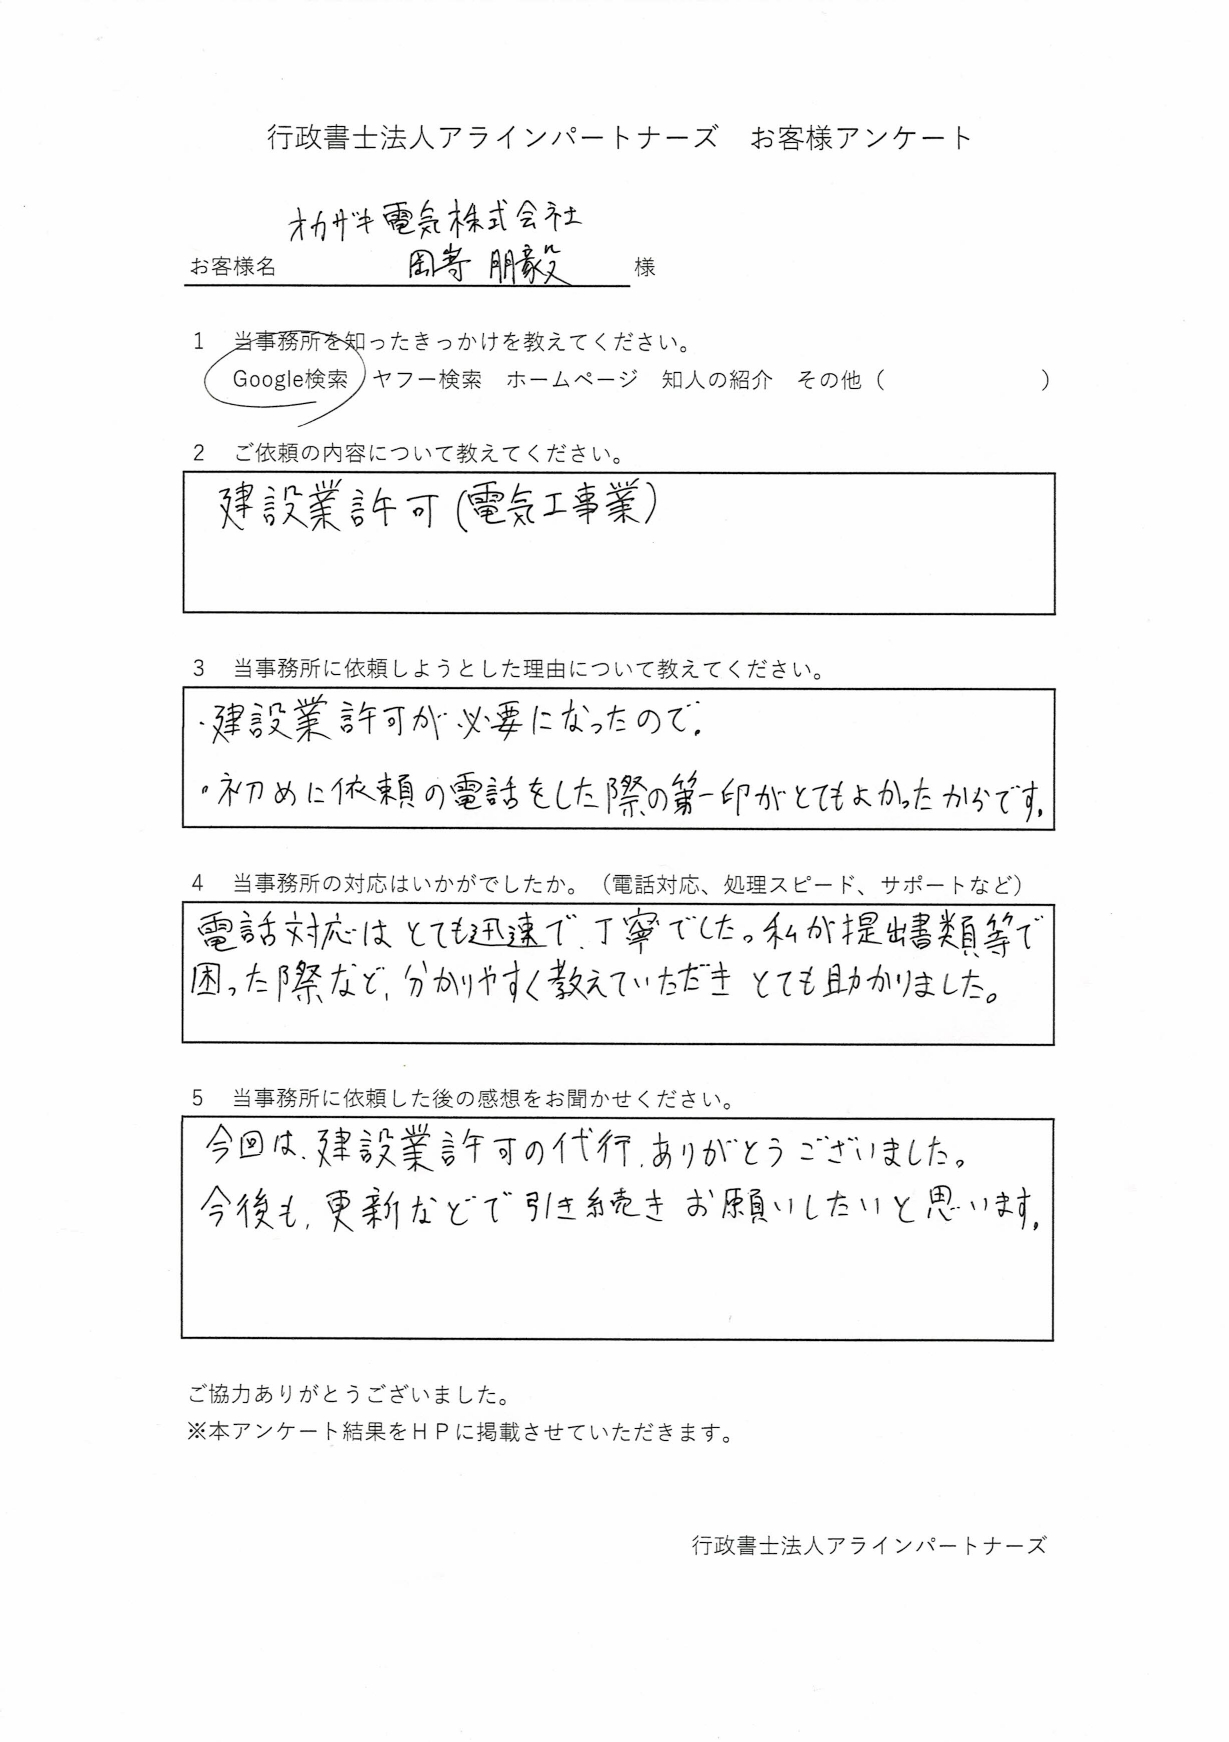 行政書士法人アラインパートナーズ　お客様アンケート
オカザキ電気株式会社
お客様名　岡嵜 朋毅　様
1　当事務所を知ったきっかけを教えてください。
Google検索　ヤフー検索　ホームページ　知人の紹介　その他（　　　　　　　）
2　ご依頼の内容について教えてください。
建設業許可(電気工事業)
3　当事務所に依頼しようとした理由について教えてください。
・建設業許可が必要になったので.
・初めに依頼の電話をした際の第一印がとてもよかったからです.
4　当事務所の対応はいかがでしたか。（電話対応、処理スピード、サポートなど）
電話対応はとても迅速で、丁寧でした。私が提出書類等で
困った際など、分かりやすく教えていただきとても助かりました。
5　当事務所に依頼した後の感想をお聞かせください。
今回は、建設業許可の代行、ありがとうございました。
今後も、更新などで引き続きお願いしたいと思います.
ご協力ありがとうございました。
※本アンケート結果をＨＰに掲載させていただきます。
行政書士法人アラインパートナーズ